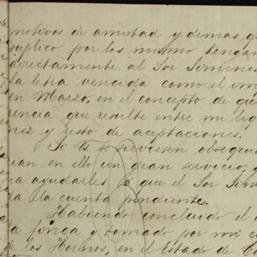 motivos de amistad y demas q
suplico por los mismo tengan
directamente al Sor Simenes
la letra vencida como el im
en Marzo, en el concepto de que
rencia que resulte entre mi liq
nez y resto de aceptaciones.
Si Us se sirvieren obsequi
ran en ello un gran servicio, y
ra ayudarles a que el Sor Sim
ra la cuenta pendiente.
Habiendo concluido el a
la finca y tomado por mi c
de los Hornos, en el Estado de C